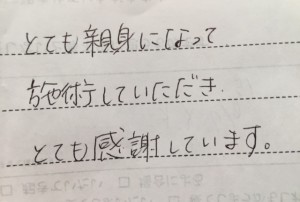 とても親身になって
施術していただき.
とても感謝しています。